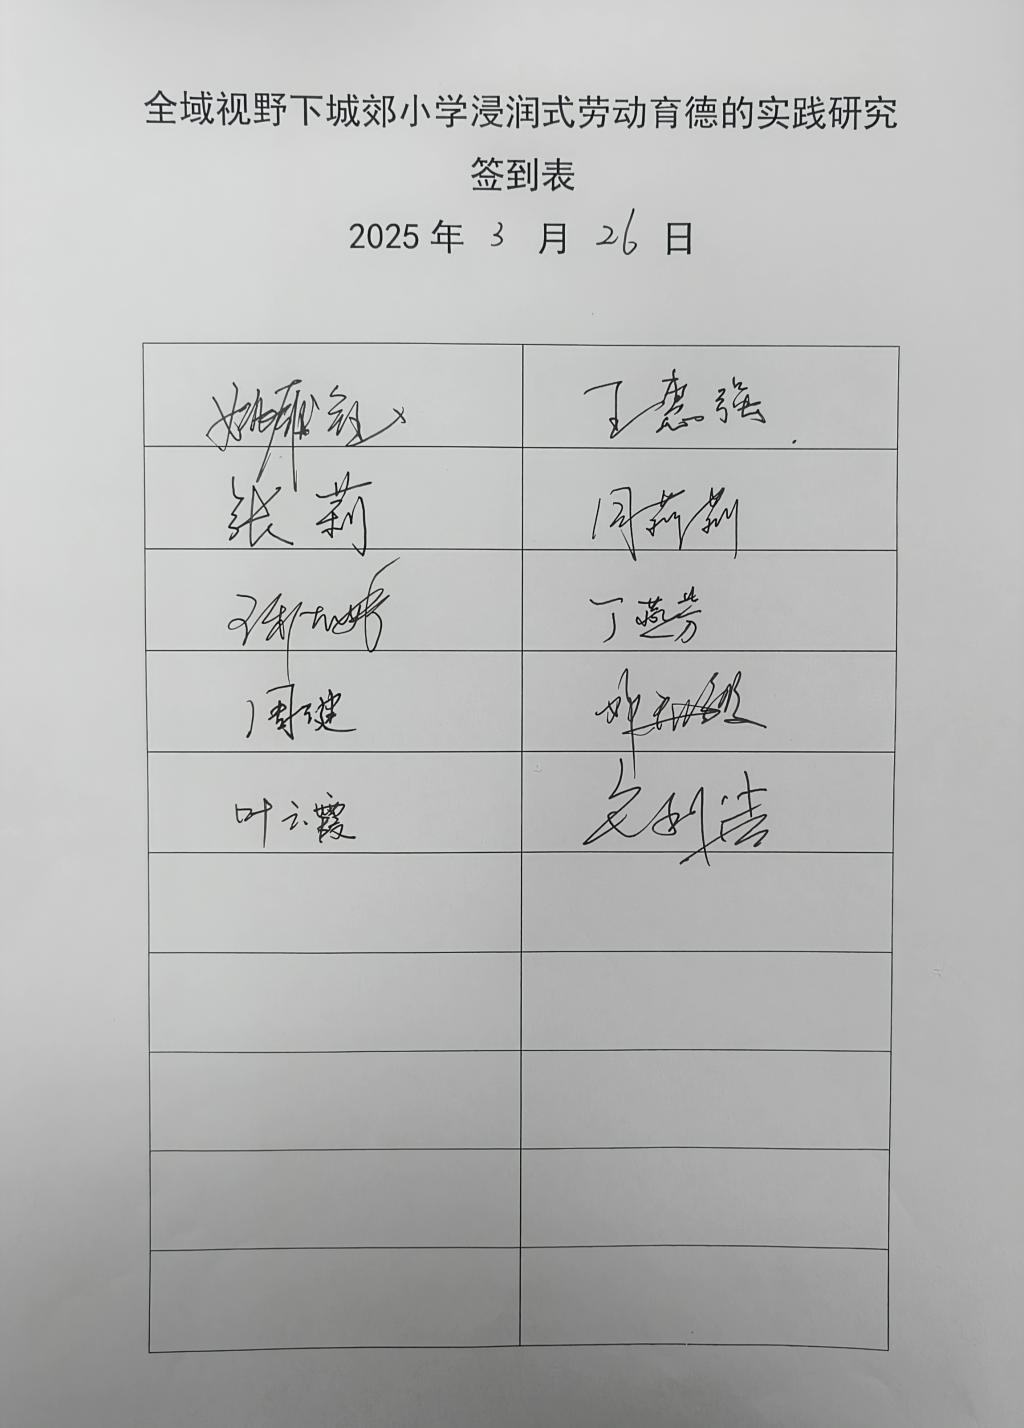 全域视野下城郊小学浸润式劳动育德的实践研究
签到表
2025年 3 月 26 日
王惠强
张莉
周莉莉
丁燕芳
周建
叶云霞